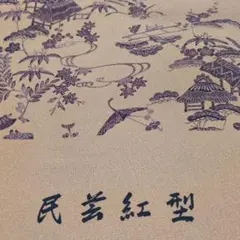 民芸紅型